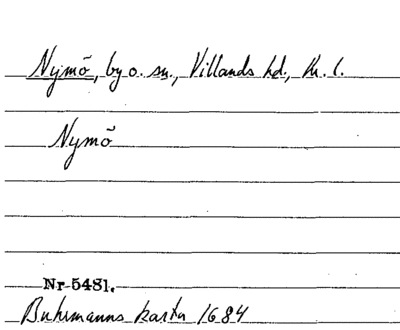 Nymö, by o. sn., Villands hd., Kr. l.
Nymö
Nr 5481.
Buhrmanns karta 1684